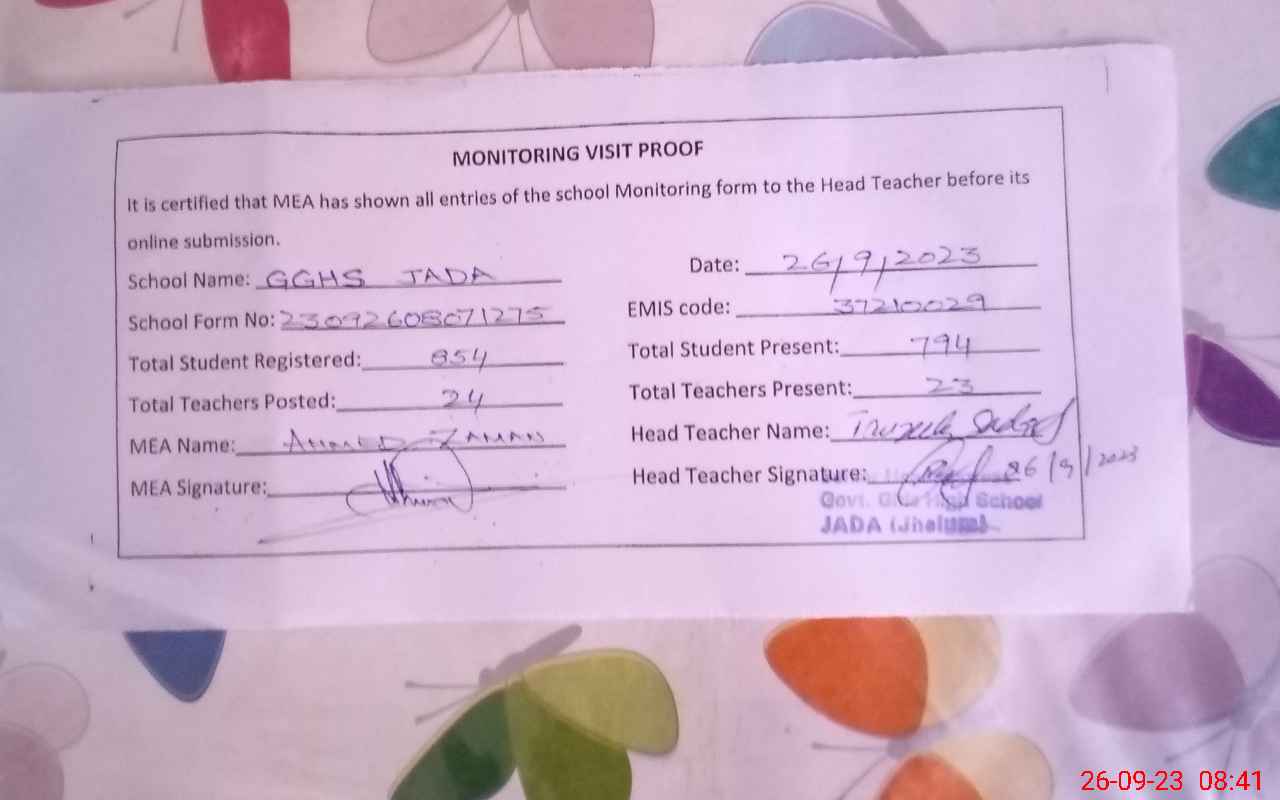 MONITORING VISIT PROOF
It is certified that MEA has shown all entries of the school Monitoring form to the Head Teacher before its
online submission.
School Name: GGHS JADA Date: 26/9/2023
School Form No: 23092608071275 EMIS code: 37210029
Total Student Registered: 854 Total Student Present: 794
Total Teachers Posted: 24 Total Teachers Present: 23
MEA Name: AHMED ZAMAN Head Teacher Name:
MEA Signature: Head Teacher Signature: 26/9/2023
Govt. Girls High School
JADA (Jhelum)
26-09-23 08:41